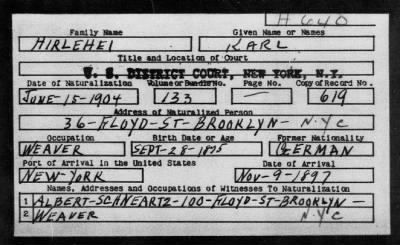 H640
Family Name Given Name or Names
HIRLEHEI KARL
Title and Location of Court
U. S. DISTRICT COURT, NEW YORK, N.Y.
Date of Naturalization Volume or Bundle No. Page No. Copy of Record No.
JUNE-15-1904 133 — 619
Address of Naturalized Person
36-FLOYD-ST-BROOKLYN-N-Y-C
Occupation Birth Date or Age Former Nationality
WEAVER SEPT-28-1875 GERMAN
Port of Arrival in the United States Date of Arrival
NEW-YORK NOV-9-1897
Names, Addresses and Occupations of Witnesses To Naturalization
1 ALBERT-SCHWEARTZ-100-FLOYD-ST-BROOKLYN-
2 WEAVER N-Y-C